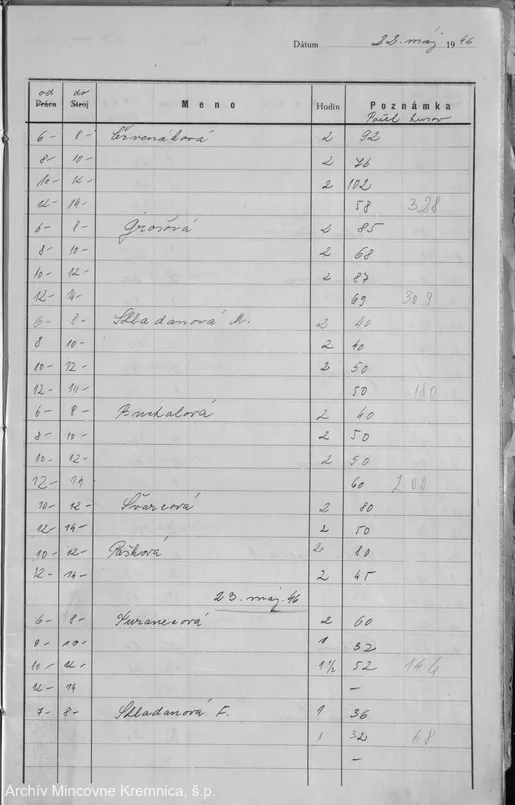 Dátum 22. máj 1946
od do
Práca Stroj Meno Hodín Poznámka
Počet kusov
6- 8- Červenáková 2 92
8- 10- 2 76
10- 12- 2 102
12- 14- 58 328
6- 8- Grošová 2 85
8- 10- 2 68
10- 12- 2 87
12- 14- 69 309
6- 8- Skladanová M. 2 40
8 10- 2 40
10- 12- 2 50
12- 14- 50 180
6- 8- 2 40
8- 10- 2 50
10- 12- 2 50
12- 14 60 200
10- 12- Švarcová 2 80
12- 14- 2 50
10- 12- Pašková 2 80
12- 14- 2 45
23. máj. 46
6- 8- 2 60
9- 10- 1 32
10- 12- 1 1/2 52 144
12- 14 -
7- 8- Skladanová F. 1 36
1 32 68
-
Archív Mincovne Kremnica, š.p.